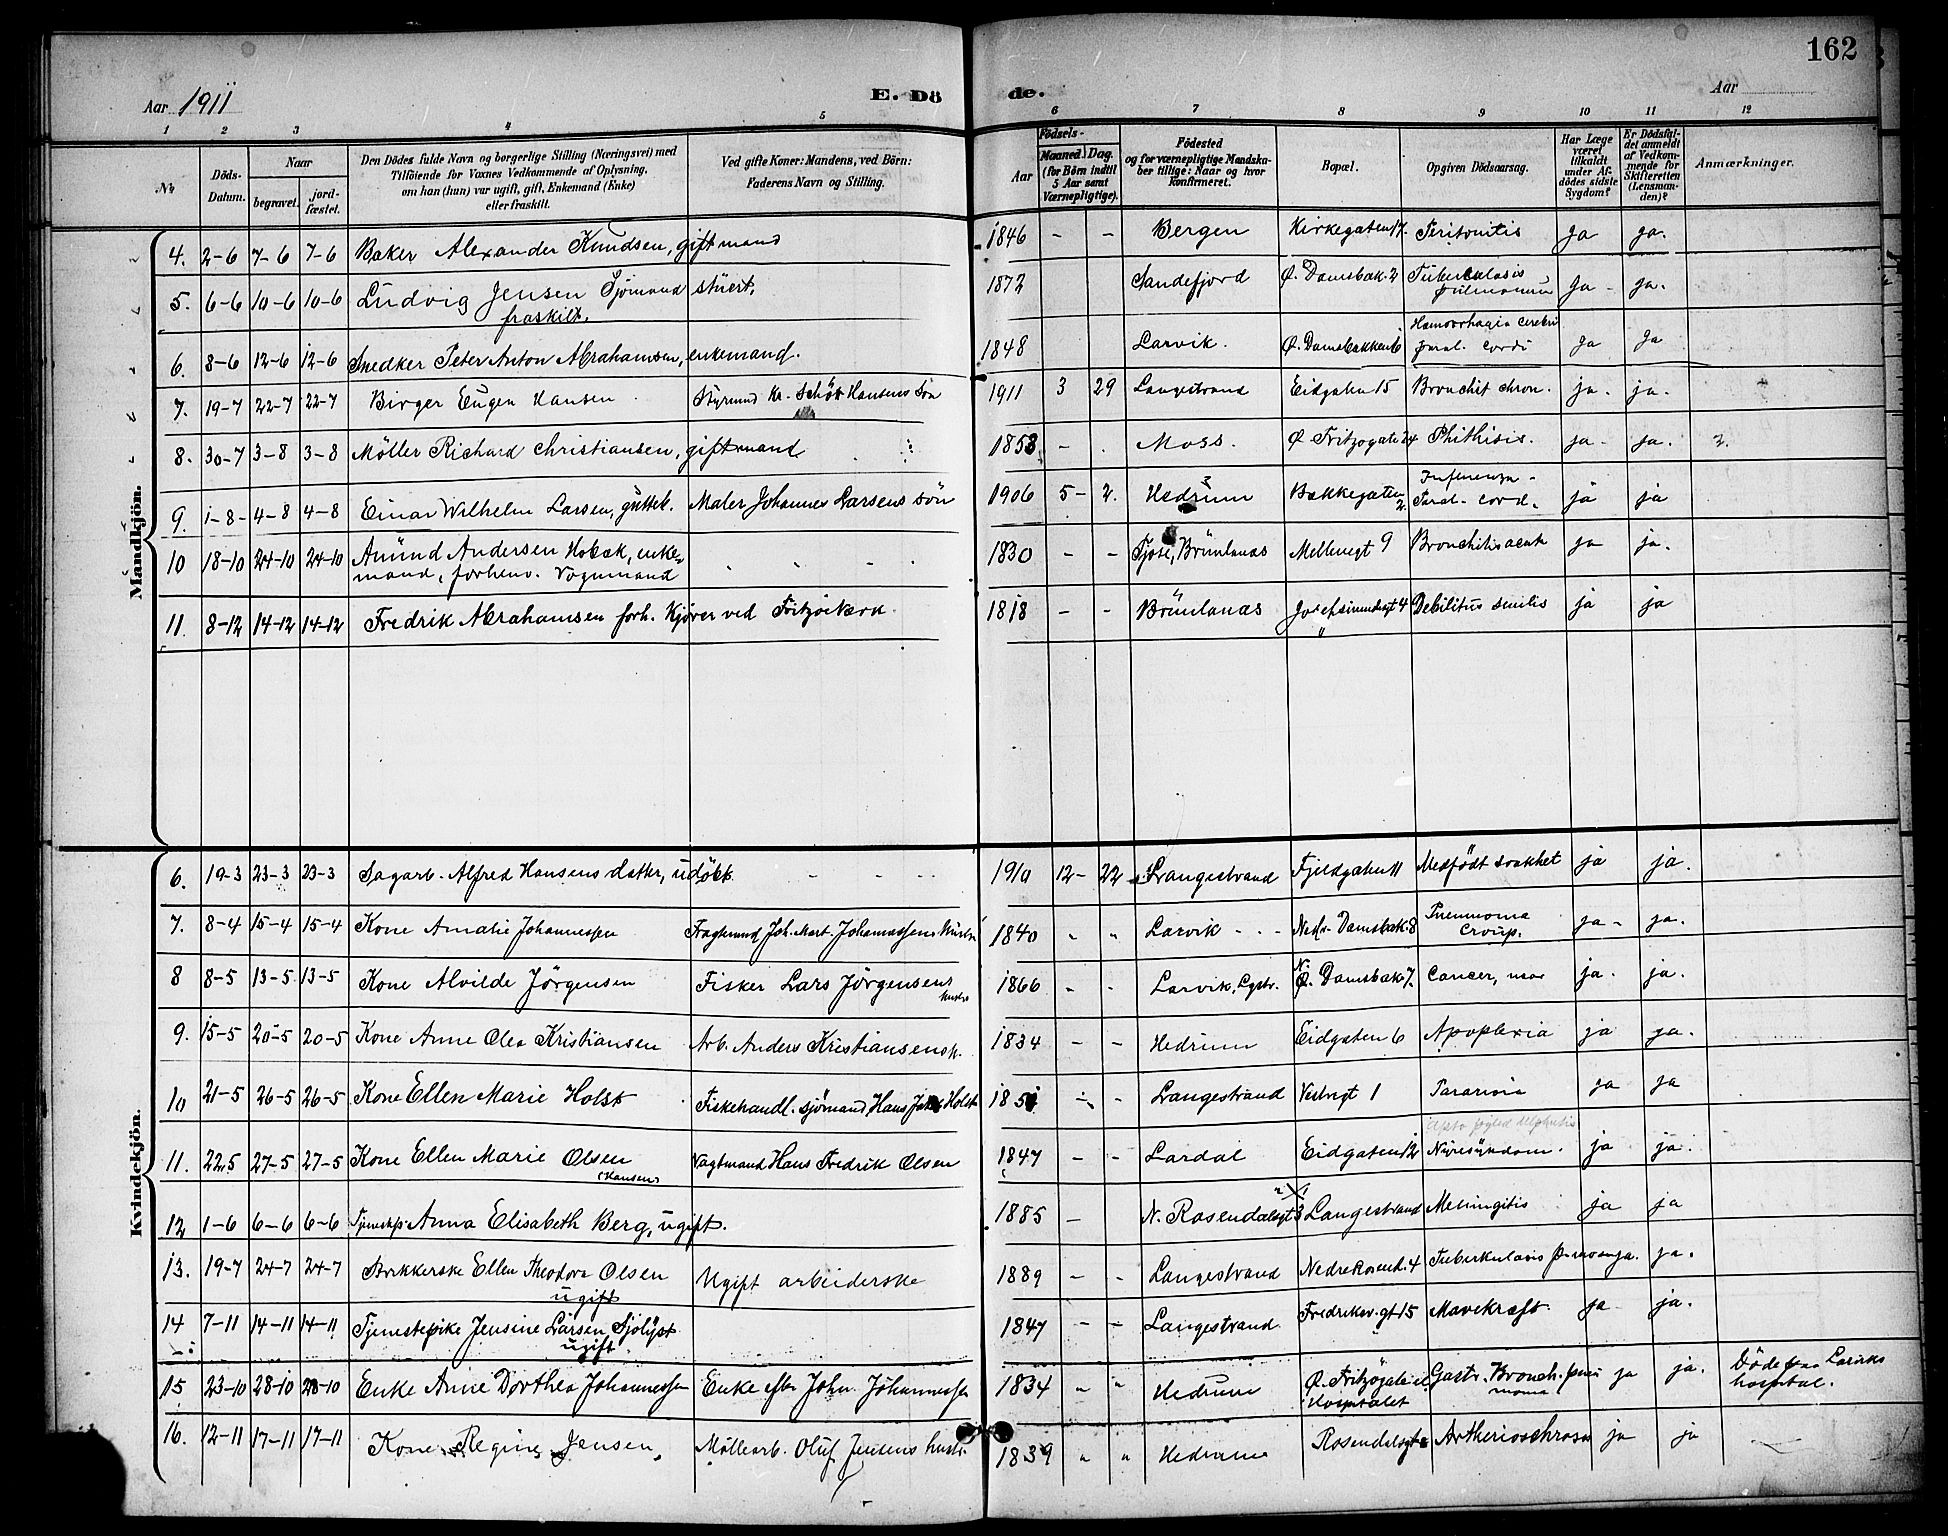 162
Aar 1911 E. Dö de. Aar
1 2 3 4 5 6 7 8 9 10 11 12
No Döds-Datum. Naar begravet. jordfæstet. Den Dödes fulde Navn og borgerlige Stilling (Næringsvei) med Tilföiende for Voxnes Vedkommende af Oplysning, om han (hun) var ugift, gift, Enkemand (Enke) eller fraskilt. Ved gifte Koner: Mandens, ved Börn: Faderens Navn og Stilling. Födsels- Aar Maaned. Dag. (for Börn indtil 5 Aar samt Værnepligtige). Födested og for værnepligtige Mandskaber tillige: Naar og hvor konfirmeret. Bopæl. Opgiven Dödsaarsag. Har Læge været tilkaldt under Afdödes sidste Sygdom? Er Dödsfaldet anmeldt af Vedkommende for Skifteretten (Lensmanden)? Anmærkninger.
Mandkjön.
4. 2-6 7-6 7-6 Baker Alexander Knudsen, gift mand 1846 - - Bergen Kirkegaten 17. Peritonitis ja ja.
5. 6-6 10-6 10-6 Ludvig Jensen Sjömand stuert, 1872 Sandefjord Ø. Damsbak. 2 Tuberkulosis
fraskilt. pulmonum ja - ja.
6. 8-6 12-6 12-6 Snedker Peter Anton Abrahamsen, enkemand. 1848 Larvik. Ø. Damsbakken 6 Hæmorrhagia cerebri
paral. cordis ja ja
7. 19-7 22-7 22-7 Birger Eugen Hansen Styrmand Kr. Schött Hansens Sön 1911 3 29 Langestrand Eidgaten 15 Bronchit chron. ja. ja.
8. 30-7 3-8 3-8 Möller Richard Christiansen, gift mand 1853 - Moss. Ø Fritzøgate 24 Phthisis. ja - ja. 2.
9. 1-8 4-8 4-8 Einar Wilhelm Larsen, guttеb. Maler Johannes Larsens sön 1906 5 - 2. Hedrum Bakkegaten 2. Influenza -
Paral. cord. ja ja
10 18-10 24-10 24-10 Amund Andersen Hobæk, enke-
mand, forhenv. Vognmand 1830 - - Tjøse, Brunlanæs Mellemgt 9 Bronchitis acut ja ja.
11. 8-12 14-12 14-12 Fredrik Abrahamsen forh. Kjører ved Fritzöe Værk. 1818 - - Brunlanæs Josefinesgt 4 Debilitas senilis ja ja
Kvindekjön.
6. 19-3 23-3 23-3 Sagarb. Alfred Hansens datter, udöbt 1910 12 - 22 Langestrand Fjeldgaten 11 Medfödt svakhet ja ja.
7. 8-4 15-4 15-4 Kone Amalie Johannessen Fragtmand Joh. Mart. Johannessens Hustru 1840 " " Larvik - - - Nedr. Damsbak. 8 Pneumonia
Croup. ja - ja.
8 8-5 13-5 13-5 Kone Alvilde Jörgensen Fisker Lars Jörgensens
Hustr. 1866 - - Larvik, Lgstr. Ø. Damsbak 7. Cancer, ja. ja.
9. 15-5 20-5 20-5 Kone Anne Olea Kristiansen Arb. Anders Kristiansens h. 1834 - - Hedrum Eidgaten 6 Apoplexia ja ja.
10 21-5 26-5 26-5 Kone Ellen Marie Holst Fiskehandl. sjömand Hans Holst 1851 - - Langestrand Vestregt 1 ja ja
11. 22.5 27-5 27-5 Kone Ellen Marie Olsen Vagtmand Hans Fredrik Olsen 1847 - - Lardal Eidgaten 12 Nyresygdom. ja ja.
(Hansen)
12 1-6 6-6 6-6 Tjenestep. Anna Elisabeth Berg, ugift. 1885 - N. Rosendalsgt 3 Langestrand Meningitis ja ja
13. 19-7 24-7 24-7 Strikkerske Ellen Theodora Olsen Ugift arbeiderske 1889 - - Langestrand Nedre Rosend. 4 Tuberkulosis ja. ja.
ugift
14 7-11 14-11 14-11 Tjenestepike Jensine Larsen Sjölyst 1847 - - Langestrand Fredriksv. gt 15 Mavekræft. ja ja.
ugift
15 23-10 28-10 28-10 Enke Anne Dorthea Johannessen Enke efter John. Johannessen 1834 " " Hedrum Ø. Fritzögate
Hospitalet Gastr. Bronch. pneu
monia ja ja. Döde paa Larviks
hospital.
16. 12-11 17-11 17-11 Kone Regine Jensen, Möllearb. Oluf Jensens hustr 1839 " " Hedrum Rosendalsgt Artherioschrose ja ja